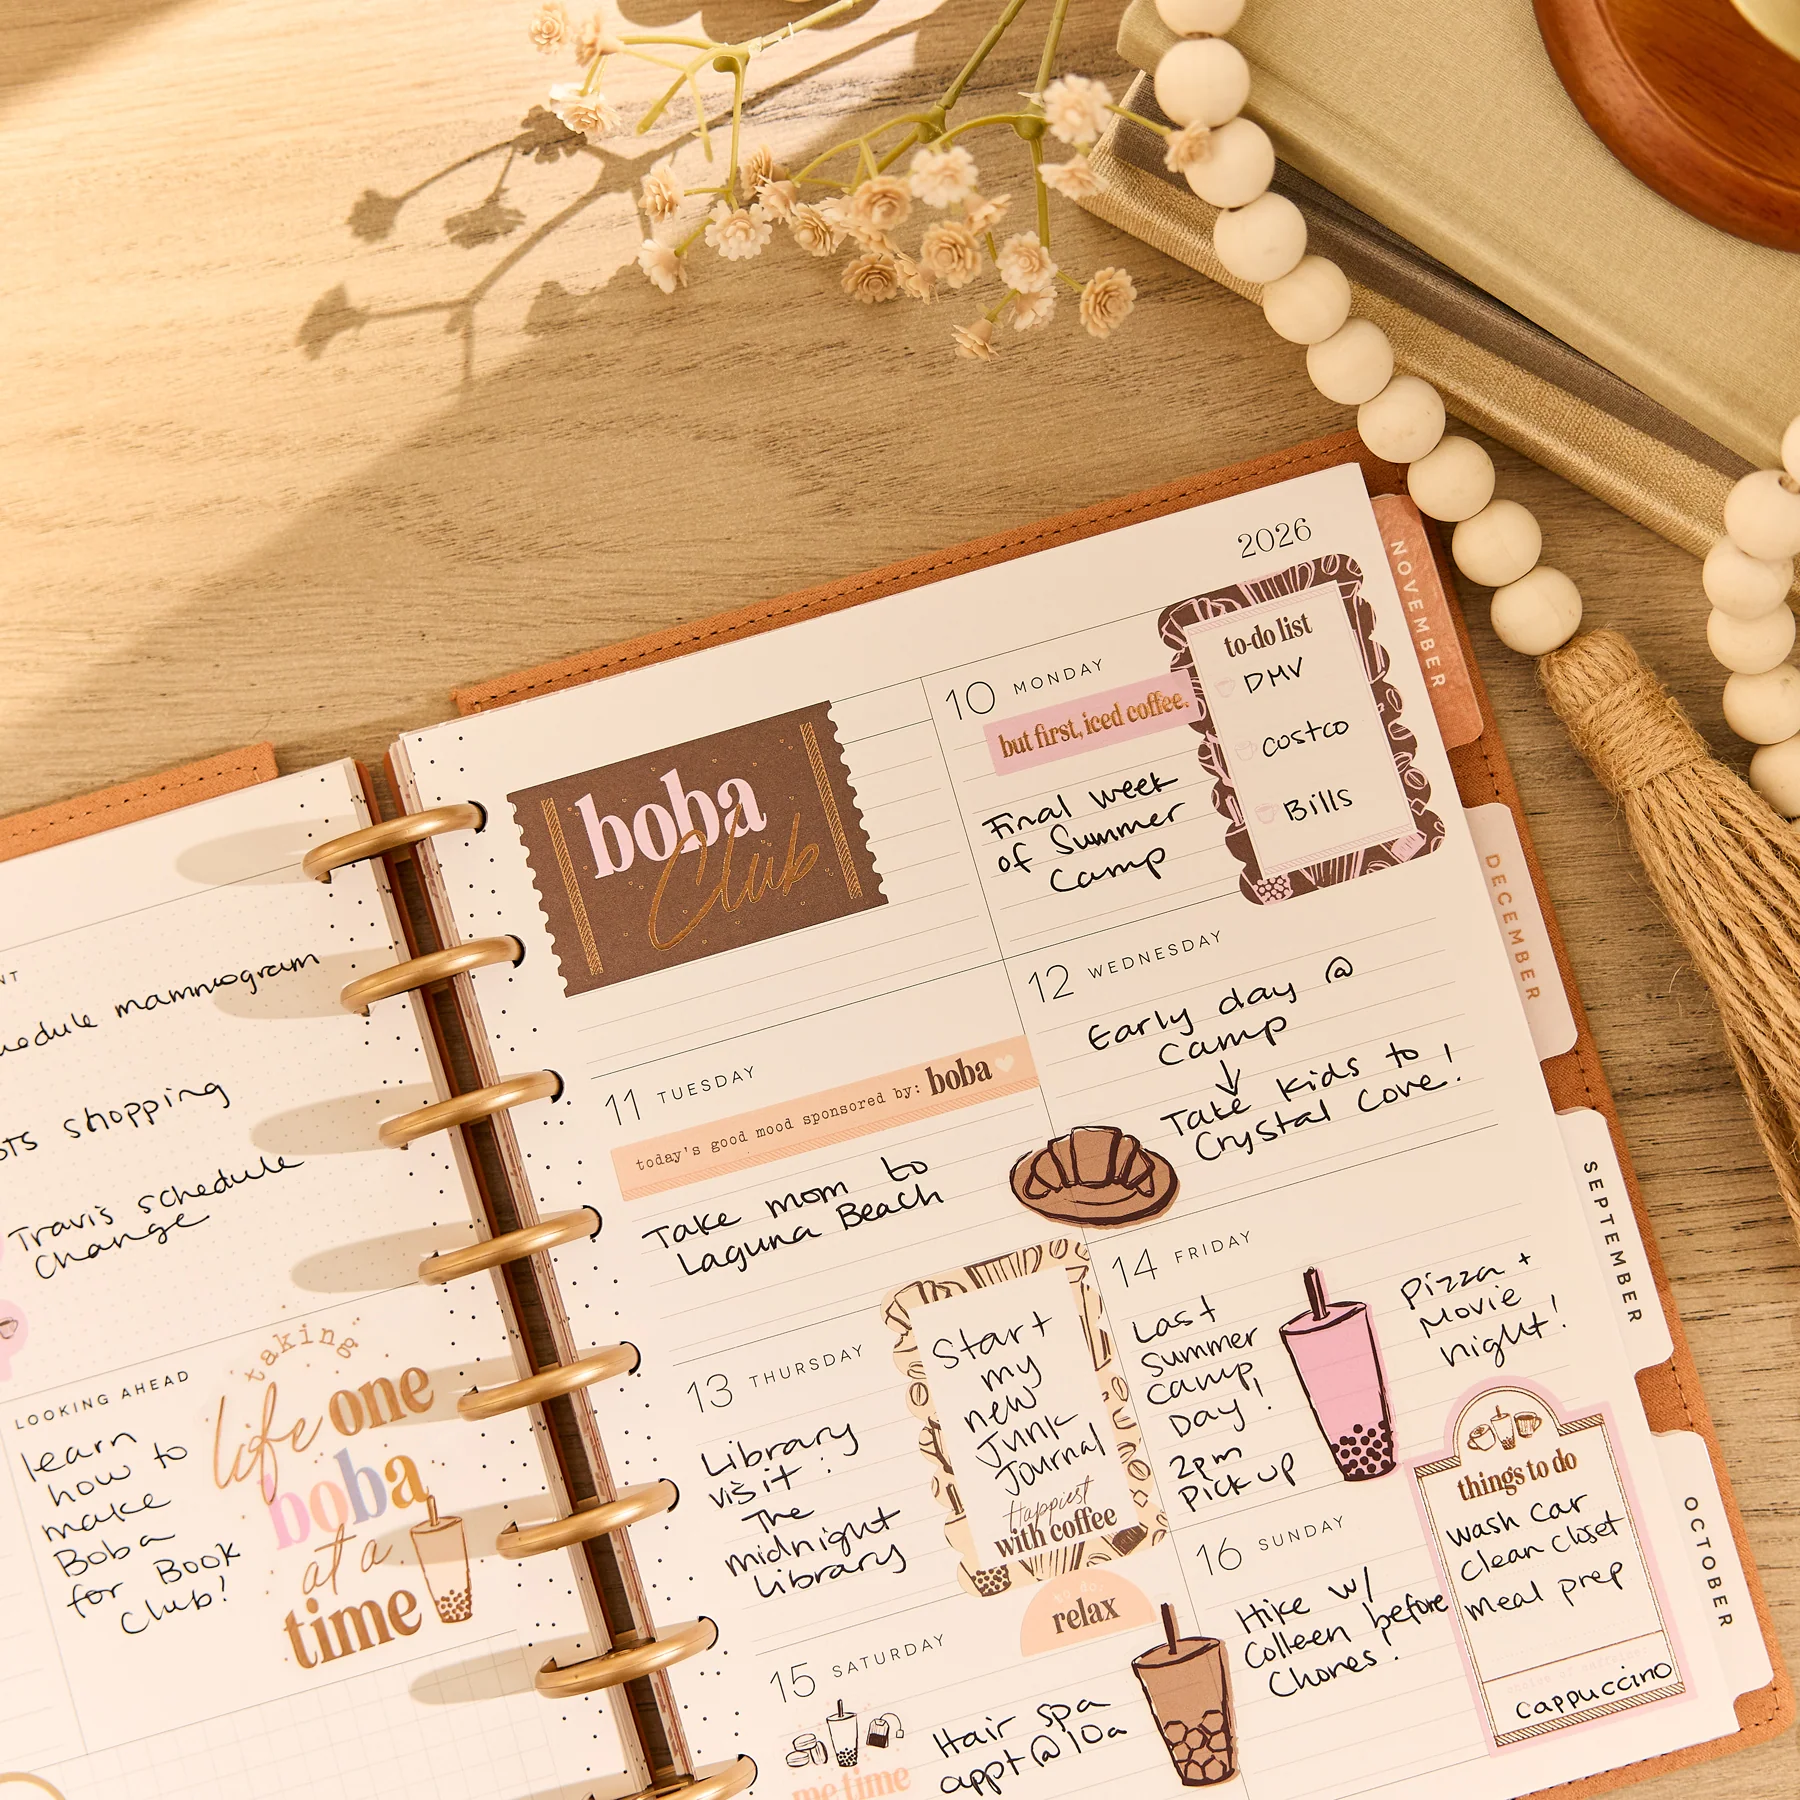 NT
mammogram
shopping
Travis schedule
change
LOOKING AHEAD
learn
how to
make
Boba
for Book
Club!
taking
life one
boba
at a
time
2026
boba
Club
10 MONDAY
but first, iced coffee.
Final week
of Summer
Camp
to-do list
DMV
costco
Bills
11 TUESDAY
today's good mood sponsored by: boba
Take mom to
Laguna Beach
12 WEDNESDAY
Early day @
Camp
↓
Take kids to
Crystal Cove!
13 THURSDAY
Library
visit:
The
midnight
Library
Start
my
new
Junk
Journal
Happiest
with coffee
14 FRIDAY
Last
Summer
Camp
Day!
2pm
Pick up
Pizza +
Movie
night!
15 SATURDAY
me time
Hair spa
appt @ 10a
to do:
relax
16 SUNDAY
Hike w/
Colleen before
Chores!
things to do
wash car
clean closet
meal prep
cappuccino
NOVEMBER
DECEMBER
SEPTEMBER
OCTOBER